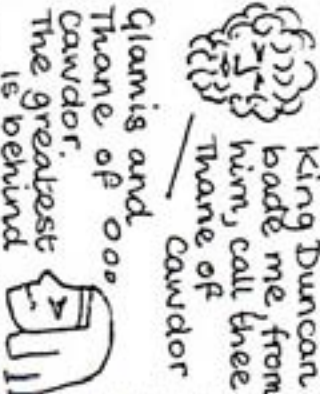 King Duncan
bade me, from
him, call thee
Thane of
Cawdor
Glamis and
Thane of
Cawdor.
The greatest
is behind